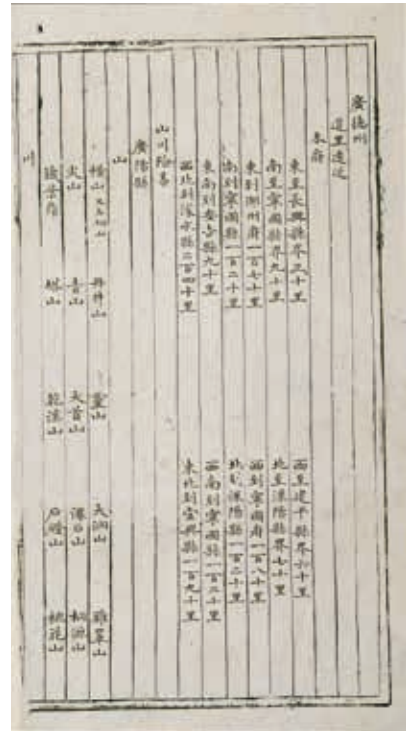 廣德州
道里遠近
本府
東至長興縣界三十里 西至建平縣界六十里
南至寧國縣界九十里 北至溧陽縣界七十里
東到湖州府一百七十里 西到寧國府一百八十里
南到寧國縣一百二十里 北到溧陽縣一百二十里
東南到安吉縣九十里 西南到寧國縣一百二十里
西北到溧水縣二百四十里 東北到宜興縣一百九十里
山川險易
廣陽縣
山
橫山 丹井山 靈山 大洞山
火山 青山 大首山 桃源山
媒山 乾溪山 石嶝山 桃花山
川